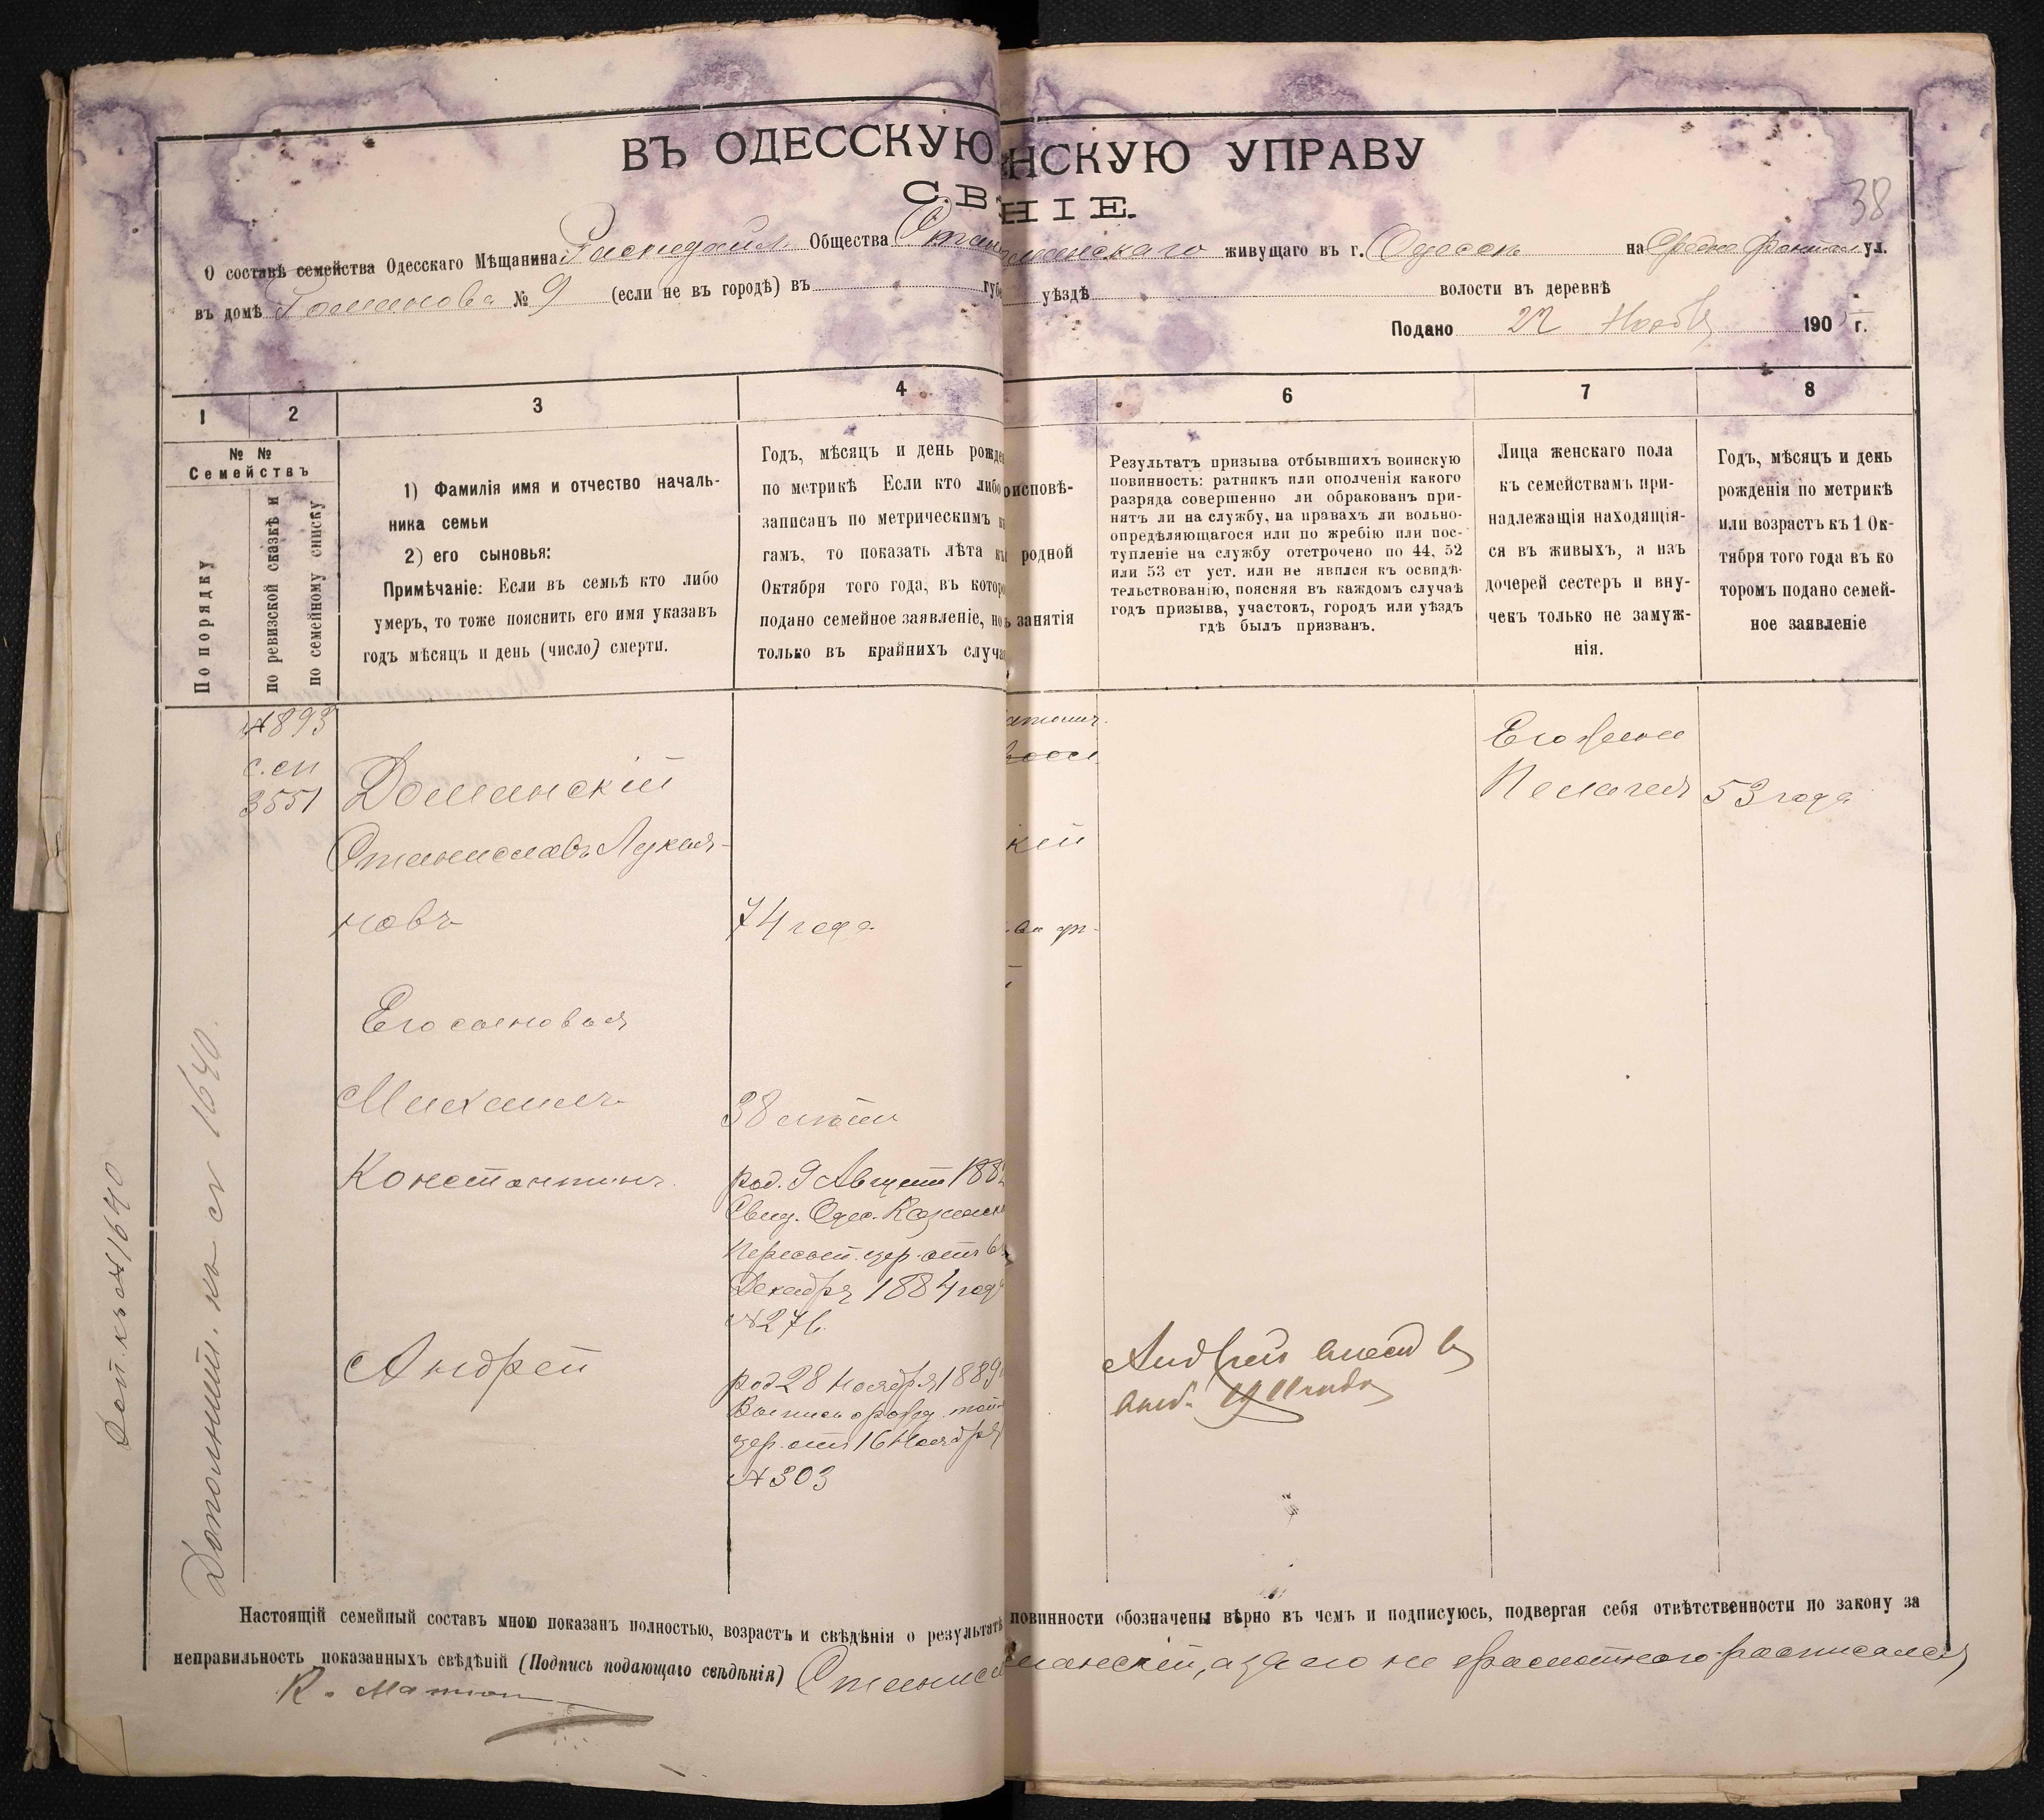 ВЪ ОДЕССКУЮ НСКУЮ УПРАВУ
СВ НІЕ.
38
О составѣ семейства Одесскаго Мѣщанина Общества живущаго въ г. Одессѣ на Средне Фонтан ул.
въ домѣ № 9 (если не въ городѣ) въ губе уѣздѣ волости въ деревнѣ
Подано 22 Нояб 190 г.
1 2 3 4 6 7 8
№ №
Семействъ
По порядку
по ревизской сказкѣ и
по семейному списку
1) Фамилія имя и отчество началь-
ника семьи
2) его сыновья:
Примѣчаніе: Если въ семьѣ кто либо
умеръ, то тоже пояснить его имя указавъ
годъ мѣсяцъ и день (число) смерти.
Годъ, мѣсяцъ и день рожде
по метрикѣ Если кто либо
записанъ по метрическимъ к
гамъ, то показать лѣта къ
Октября того года, въ которо
подано семейное заявленіе, но
только въ крайнихъ случа
оисповѣ-
родной
занятія
Результатъ призыва отбывшихъ воинскую
повинность: ратникъ или ополченія какого
разряда совершенно ли обракованъ при-
нятъ ли на службу, на правахъ ли вольно-
опредѣляющагося или по жребію или пос-
тупленіе на службу отстрочено по 44, 52
или 53 ст уст. или не явился къ освидѣ-
тельствованію, поясняя въ каждомъ случаѣ
годъ призыва, участокъ, городъ или уѣздъ
гдѣ былъ призванъ.
Лица женскаго пола
къ семействамъ при-
надлежащія находящія-
ся въ живыхъ, а изъ
дочерей сестеръ и вну-
чекъ только не замуж-
нія.
Годъ, мѣсяцъ и день
рожденія по метрикѣ
или возрастъ къ 1 Ок-
тября того года въ ко
торомъ подано семей-
ное заявленіе
№893
с.сп
3551
Доманскій
Станиславъ Лукья-
новъ
74 года
кій
Его жена
Пелагея
53 года
Его сыновья
Михаилъ
38 лѣтъ
Константинъ
род. 9 Августа 188
Свид. Одес.
Пересып. цер. отъ 6
Декабря 1884 год
№276
Андрей
род 28 Ноября 1889
Выпись о рожд. той
цер. отъ 16 Ноября
№303
Андрей
Дополнит. къ ст 1640.
Доп. къ №1640
Настоящій семейный составъ мною показанъ полностью, возрастъ и свѣдѣнія о результатѣ повинности обозначены вѣрно въ чемъ и подписуюсь, подвергая себя отвѣтственности по закону за
неправильность показанныхъ свѣдѣній (Подпись подающаго свѣдѣнія) Станисл манскій, а за его не грамотного росписался
К.